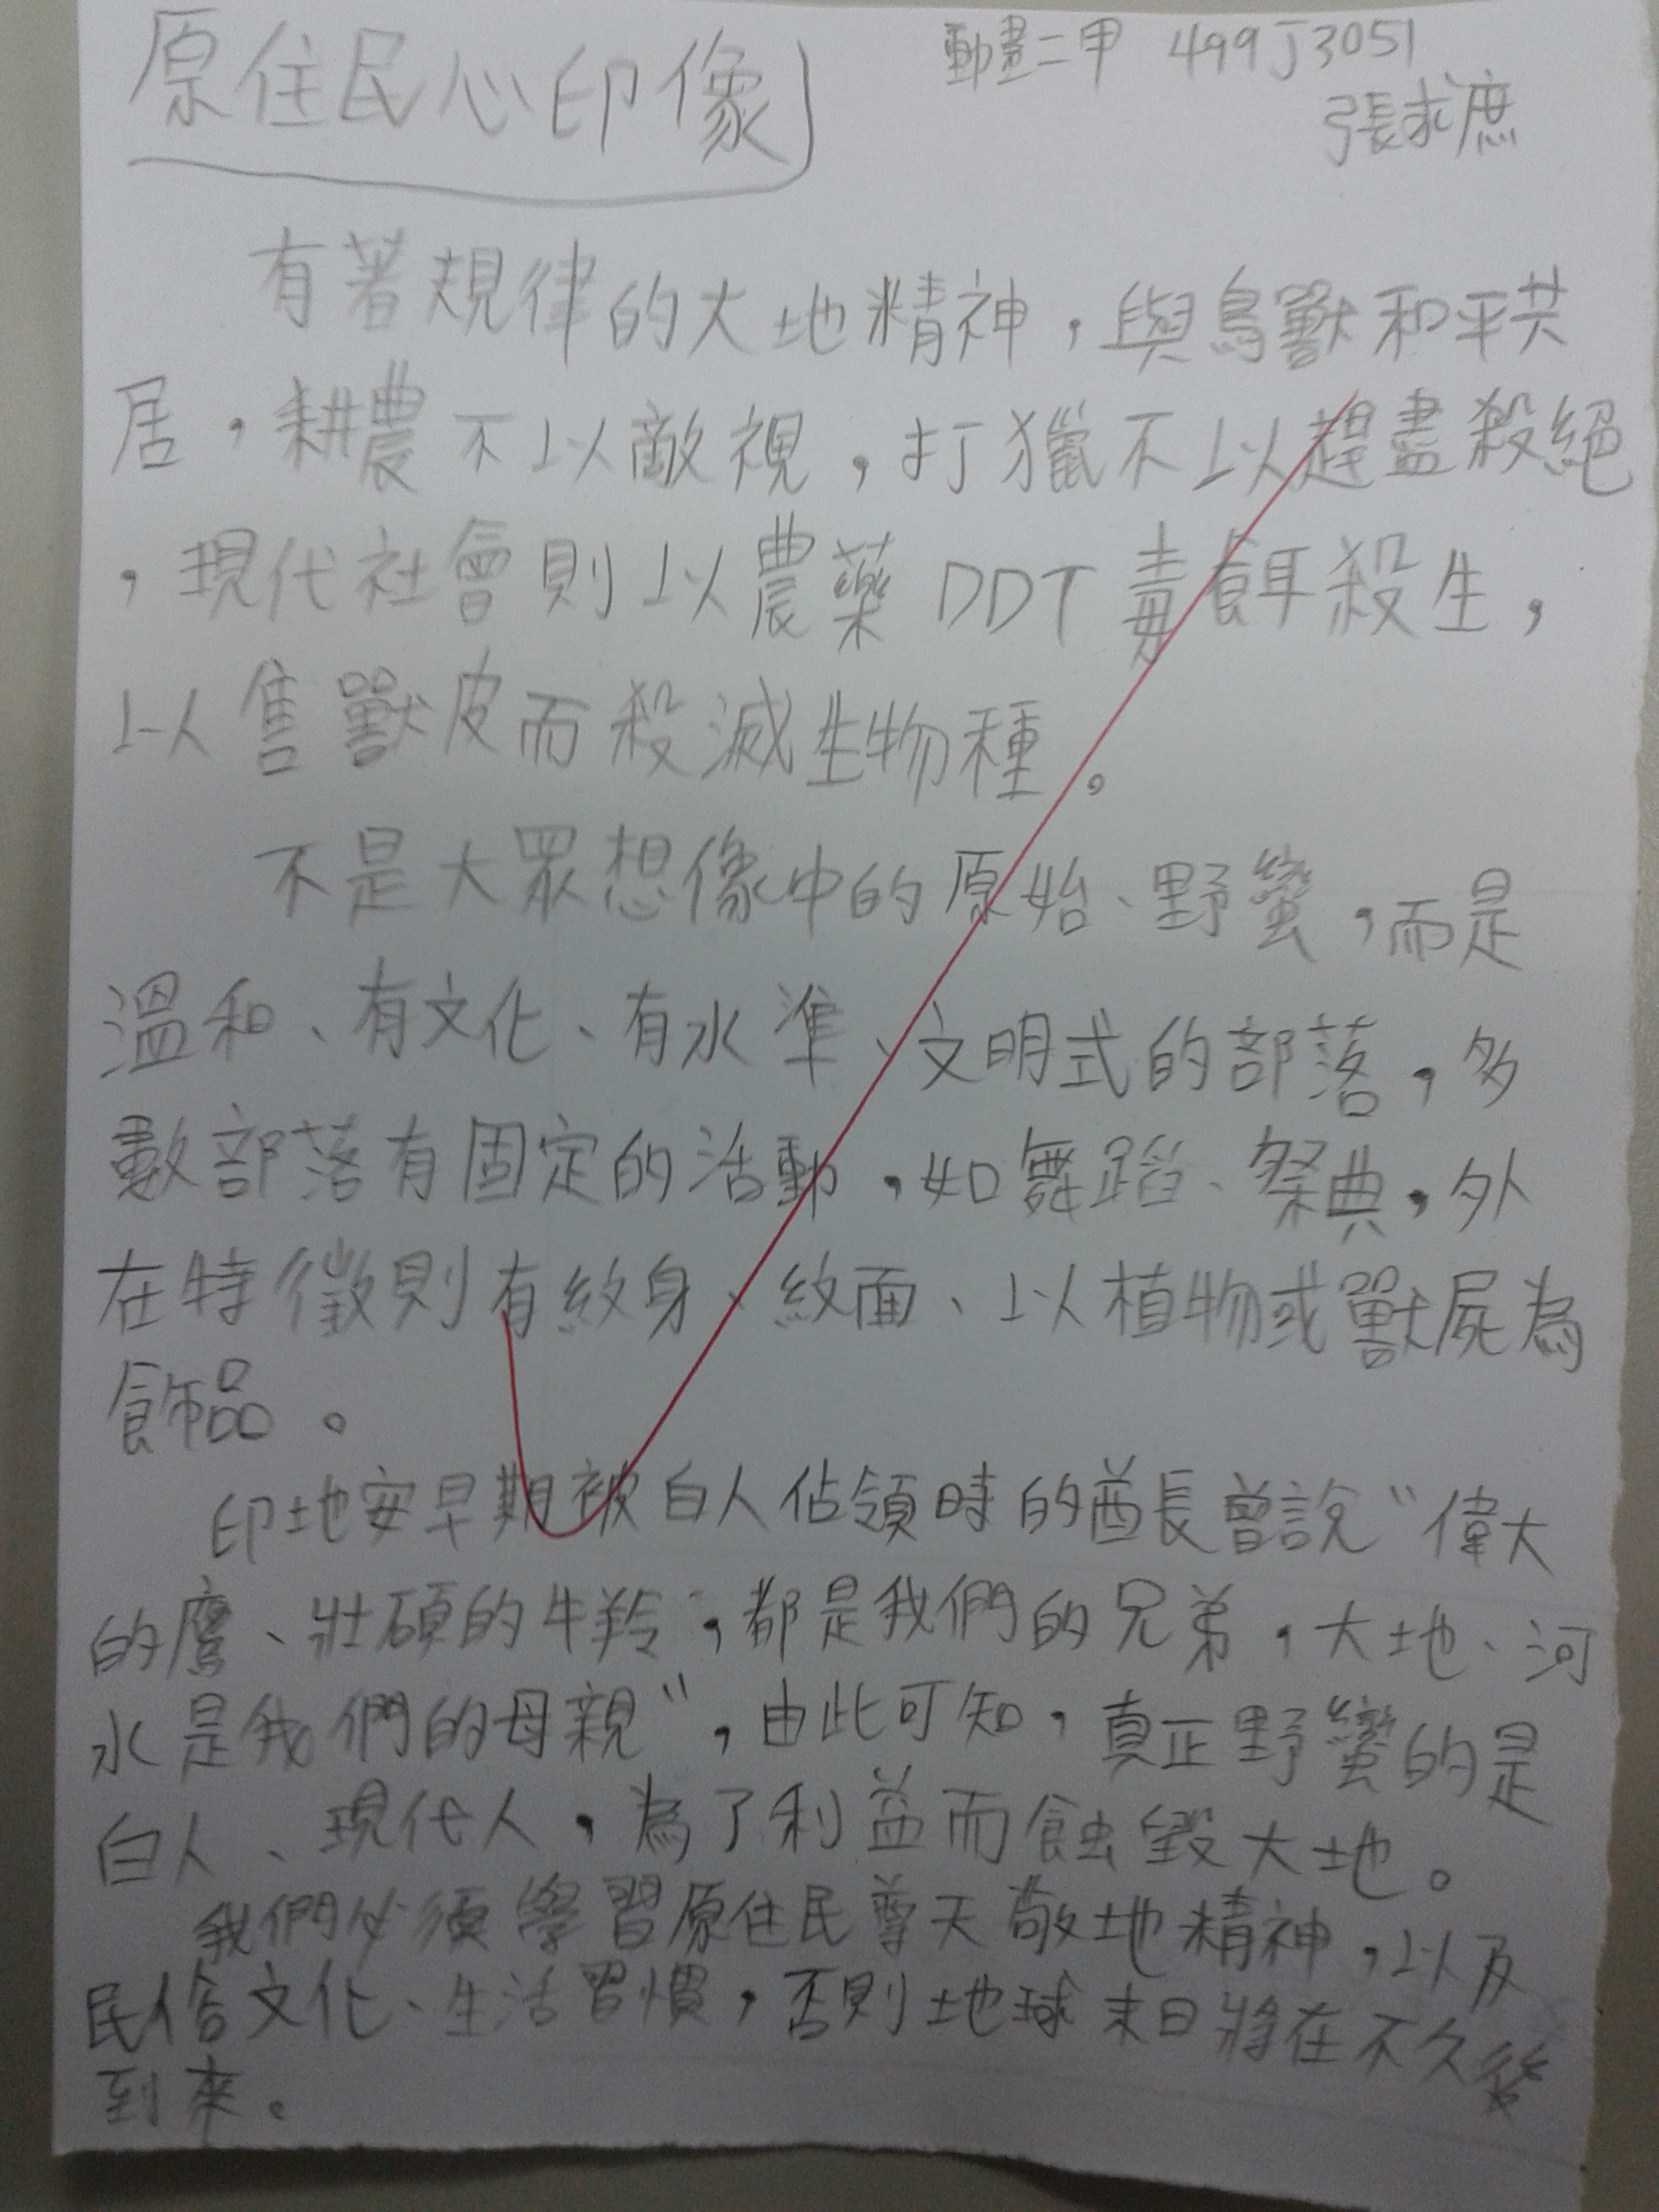 原住民心印像
動畫二甲 499J3051
張求庶
有著規律的大地精神，與鳥獸和平共
居，耕農不以敵視，打獵不以趕盡殺絕
，現代社會則以農藥DDT毒餌殺生，
以售獸皮而殺滅生物種。
不是大眾想像中的原始、野蠻，而是
溫和、有文化、有水準、文明式的部落，多
數部落有固定的活動，如舞蹈、祭典，外
在特徵則有紋身、紋面、以植物或獸屍為
飾品。
印地安早期被白人佔領時的酋長曾說"偉大
的鷹、壯碩的牛羚，都是我們的兄弟，大地、河
水是我們的母親"，由此可知，真正野蠻的是
白人、現代人，為了利益而蝕毀大地。
我們必須學習原住民尊天敬地精神，以及
民俗文化、生活習慣，否則地球末日將在不久後
到來。